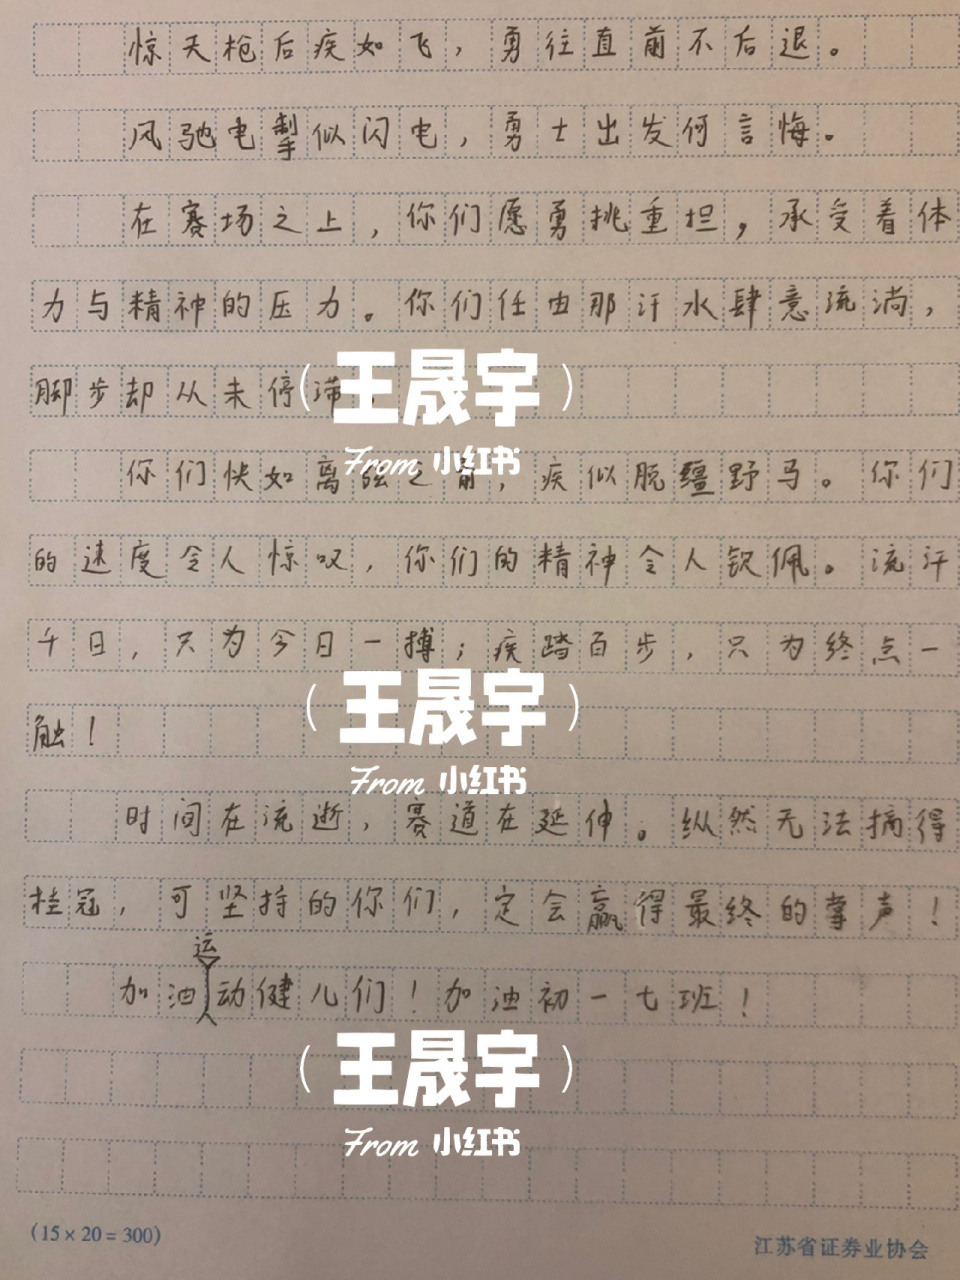 惊天枪后疾如飞，勇往直前不后退。
风驰电掣似闪电，勇士出发何言悔。
在赛场之上，你们愿勇挑重担，承受着体
力与精神的压力。你们任由那汗水肆意流淌，
脚步却从未停滞
（王晟宇）
From 小红书
你们快如离弦之箭，疾似脱缰野马。你们
的速度令人惊叹，你们的精神令人钦佩。流汗
千日，只为今日一搏；疾踏百步，只为终点一
（王晟宇）
触！
From 小红书
时间在流逝，赛道在延伸。纵然无法摘得
桂冠，可坚持的你们，定会赢得最终的掌声！
加油运动健儿们！加油初一七班！
（王晟宇）
From 小红书
（15×20=300）
江苏省证券业协会